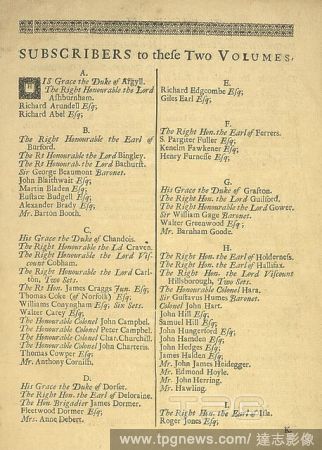 SUBSCRIBERS to these Two VOLUMES.
A.
HIS Grace the Duke of Argyll.
The Right Honourable the Lord
Ashburnham.
Richard Arundell Esq;
Richard Abel Esq;
B.
The Right Honourable the Earl of
Burford.
The Rt Honourable the Lord Bingley.
The Rt Honourab. the Lord Bathurst.
Sir George Beaumont Baronet.
John Blaithwait Esq;
Martin Bladen Esq;
Eustace Budgell Esq;
Alexander Brady Esq;
Mr. Barton Booth.
C.
His Grace the Duke of Chandois.
The Right Honourable the Ld Craven.
The Right Honourable the Lord Vis-
count Cobham.
The Right Honourable the Lord Carl-
ton, Two Sets.
The Rt Hon. James Craggs Jun. Esq;
Thomas Coke (of Norfolk) Esq;
Williams Conyngham Esq; Six Sets.
Walter Carey Esq;
The Honourable Colonel John Campbel.
The Honourable Colonel Peter Campbel.
The Honourable Col. Char. Churchill.
The Honourable Colonel John Charteris.
Thomas Cowper Esq;
Mr. Anthony Cornish.
D.
His Grace the Duke of Dorset.
The Right Hon. the Earl of Deloraine.
The Hon. Brigadier James Dormer.
Fleetwood Dormer Esq;
Mrs. Anne Debert.
E.
Richard Edgcombe Esq;
Giles Earl Esq;
F.
The Right Hon. the Earl of Ferrers.
S. Pargiter Fuller Esq;
Kenelm Fawkener Esq;
Henry Furnesse Esq;
G.
His Grace the Duke of Grafton.
The Right Hon. the Lord Guilford.
The Right Honourable the Lord Gower.
Sir William Gage Baronet.
Walter Greenwood Esq;
Mr. Barnham Goode.
H.
The Right Hon. the Earl of Holderness.
The Right Hon. the Earl of Hallifax.
The Right Hon. the Lord Viscount
Hillsborough, Two Sets.
The Honourable Colonel Hara.
Sir Gustavus Humes Baronet.
Colonel John Hart.
John Hill Esq;
Samuel Hill Esq;
John Hungerford Esq;
John Hamden Esq;
John Hedges Esq;
James Halden Esq;
Mr. John James Heidegger.
Mr. Edmond Hoyle.
Mr. John Herring.
Mr. Hawling.
I.
The Right Hon. the Earl of Ila.
Roger Jones Esq;
K.
TPG
www.tpgnews.com/ 達志影像